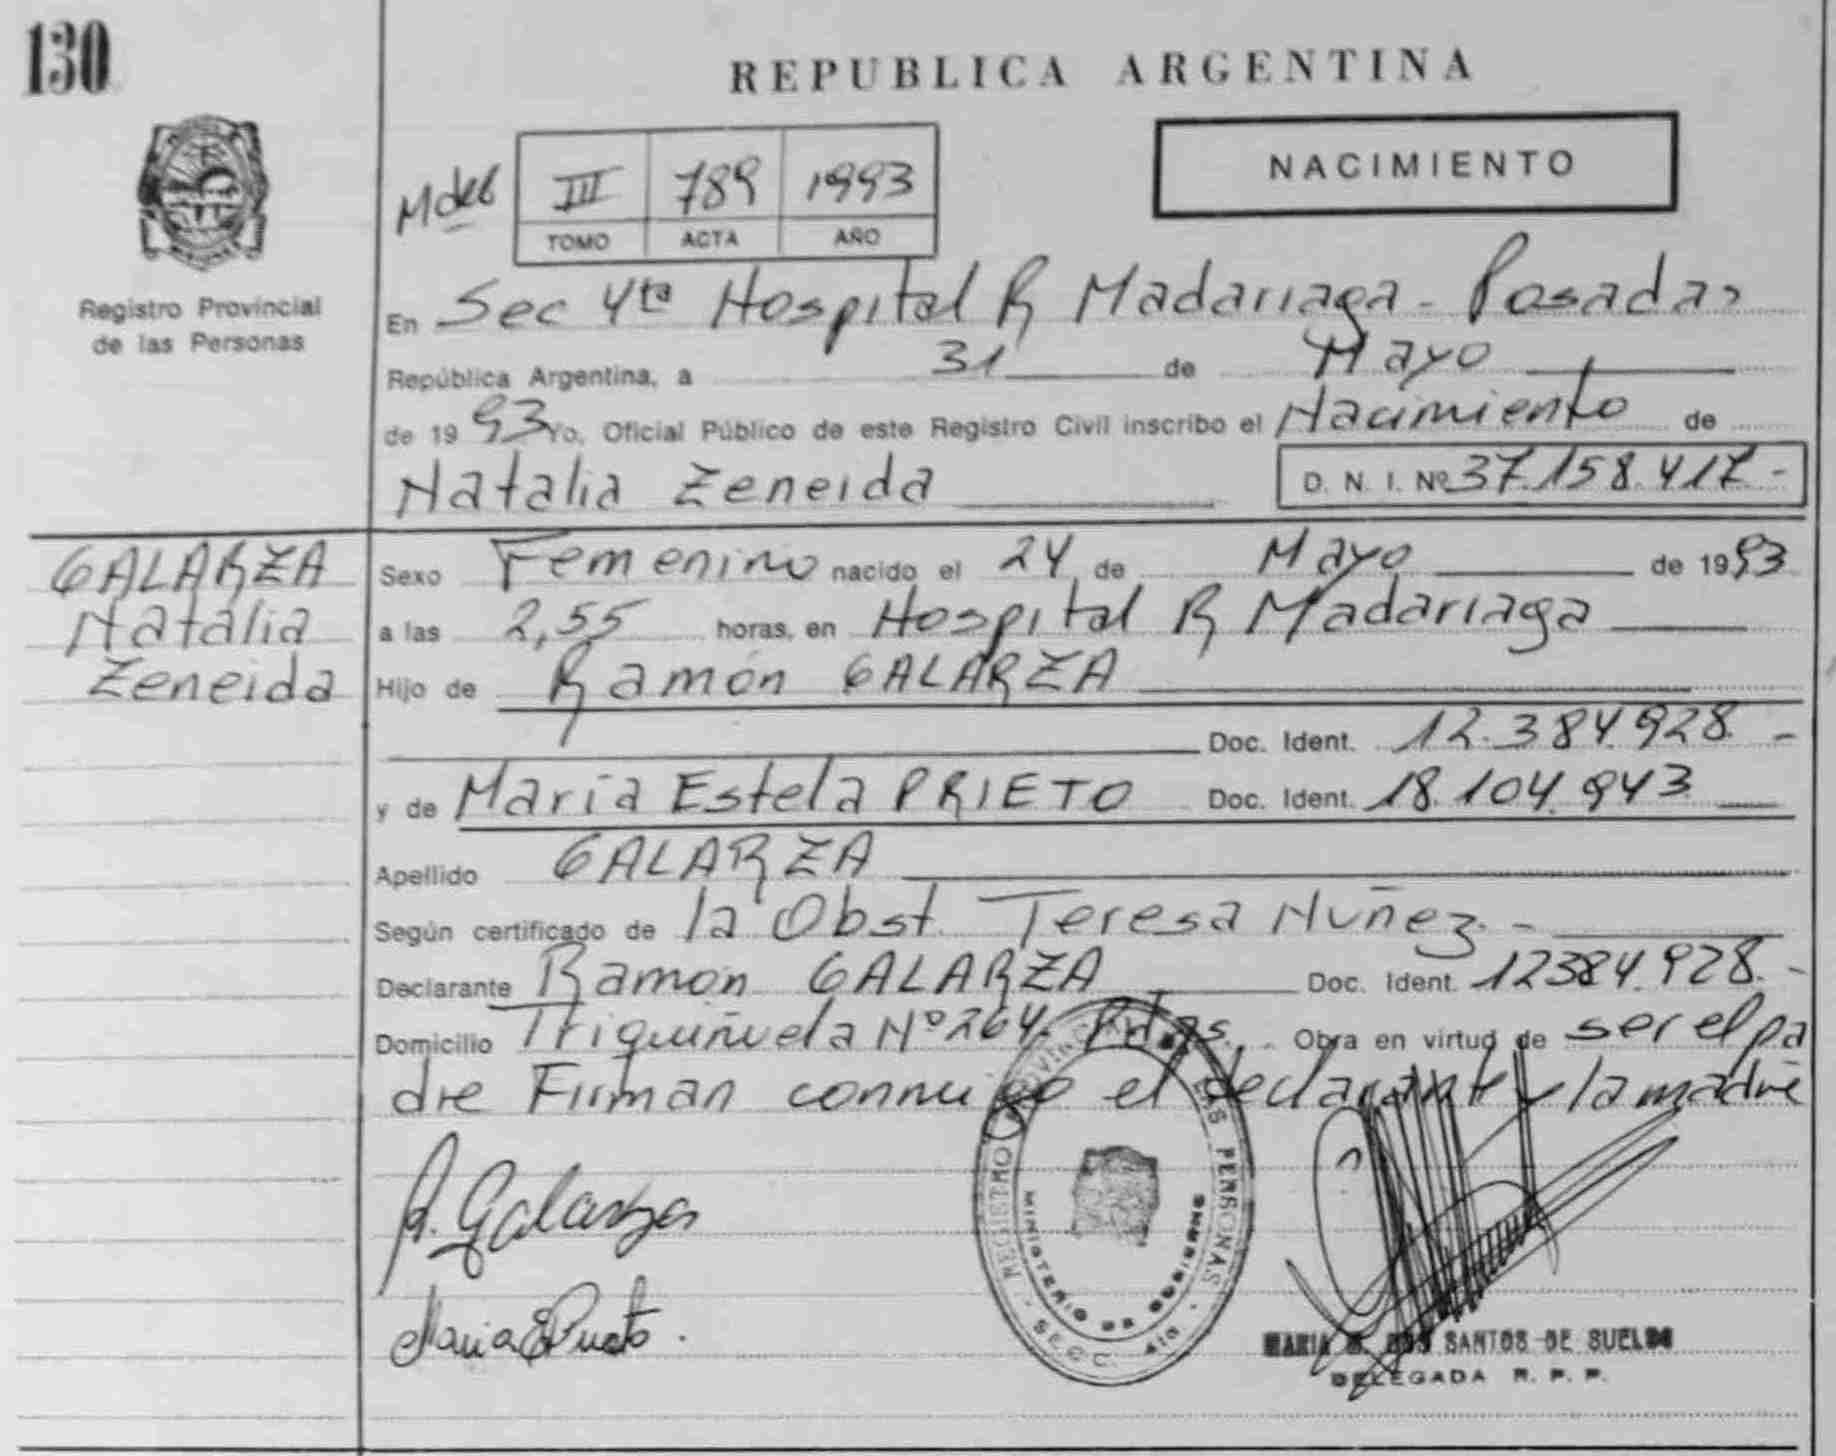 130
REPUBLICA ARGENTINA
NACIMIENTO
III 789 1993
TOMO ACTA AÑO
Registro Provincial
de las Personas
En Sec 4ta Hospital R Madariaga - Posadas
República Argentina, a 31 de Mayo
de 1993 Yo, Oficial Público de este Registro Civil inscribo el Nacimiento de
Natalia Zeneida D. N. I. Nº 37.158.417.-
GALARZA
Natalia
Zeneida
Sexo Femenino nacido el 24 de Mayo de 1993
a las 2,55 horas, en Hospital R Madariaga
Hijo de Ramón GALARZA
Doc. Ident. 12.384.928.-
y de María Estela PRIETO Doc. Ident. 18.104.943
Apellido GALARZA
Según certificado de la Obst. Teresa Nuñez.-
Declarante Ramón GALARZA Doc. Ident. 12384.928.-
Domicilio Triquiñuela Nº 264. Pdas. Obra en virtud de ser el pa
dre Firman conmigo el declarante y la madre
R. Galarza
Maria E Prieto.
REGISTRO PROVINCIAL DE LAS PERSONAS
MINISTERIO DE GOBIERNO
MARIA DOS SANTOS DE SUELDO
DELEGADA R. P. P.